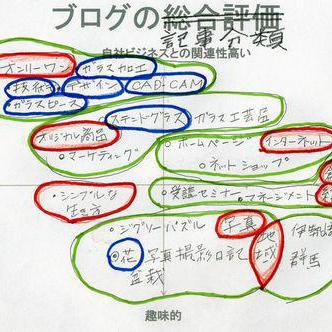 ブログの総合評価
記事分類
自社ビジネスとの関連性高い
オンリーワン ガラス加工
技術 デザイン CAD・CAM
ガラスピース
ステンドグラス ガラス工芸品
オリジナル商品 ・ホームページ インターネット
・マーケティング ・ネットショップ
・シンプルな生き方 ・受講セミナー ・マネージメント
・ジグソーパズル 写真 地域 伊勢崎
・花 写真撮影日記 群馬
盆栽
趣味的